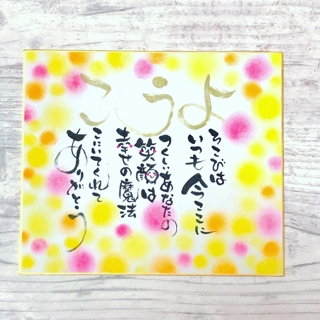 ようこ
ろこびは
いつも今ここに
つくしいあなたの
笑顔は
幸せの魔法
こにいてくれて
ありがとう